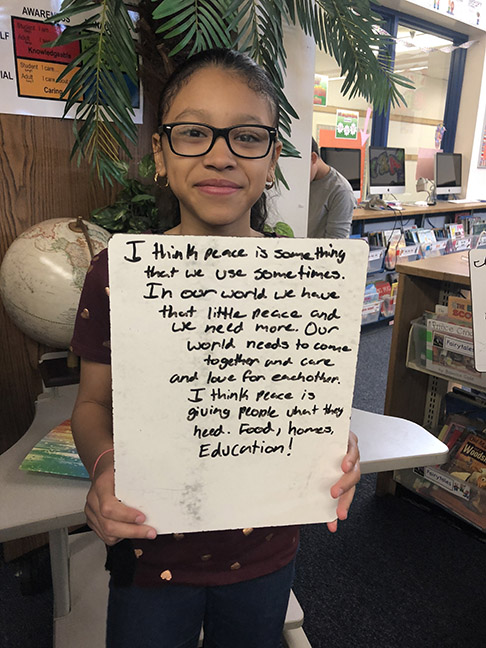 AWARENESS
Knowledgeable
Student I care
Adult I care about
Caring
I think peace is something
that we use sometimes.
In our world we have
that little peace and
we need more. Our
world needs to come
together and care
and love for eachother.
I think peace is
giving people what they
need. Food, homes,
Education!
Fairytales
Fairytales